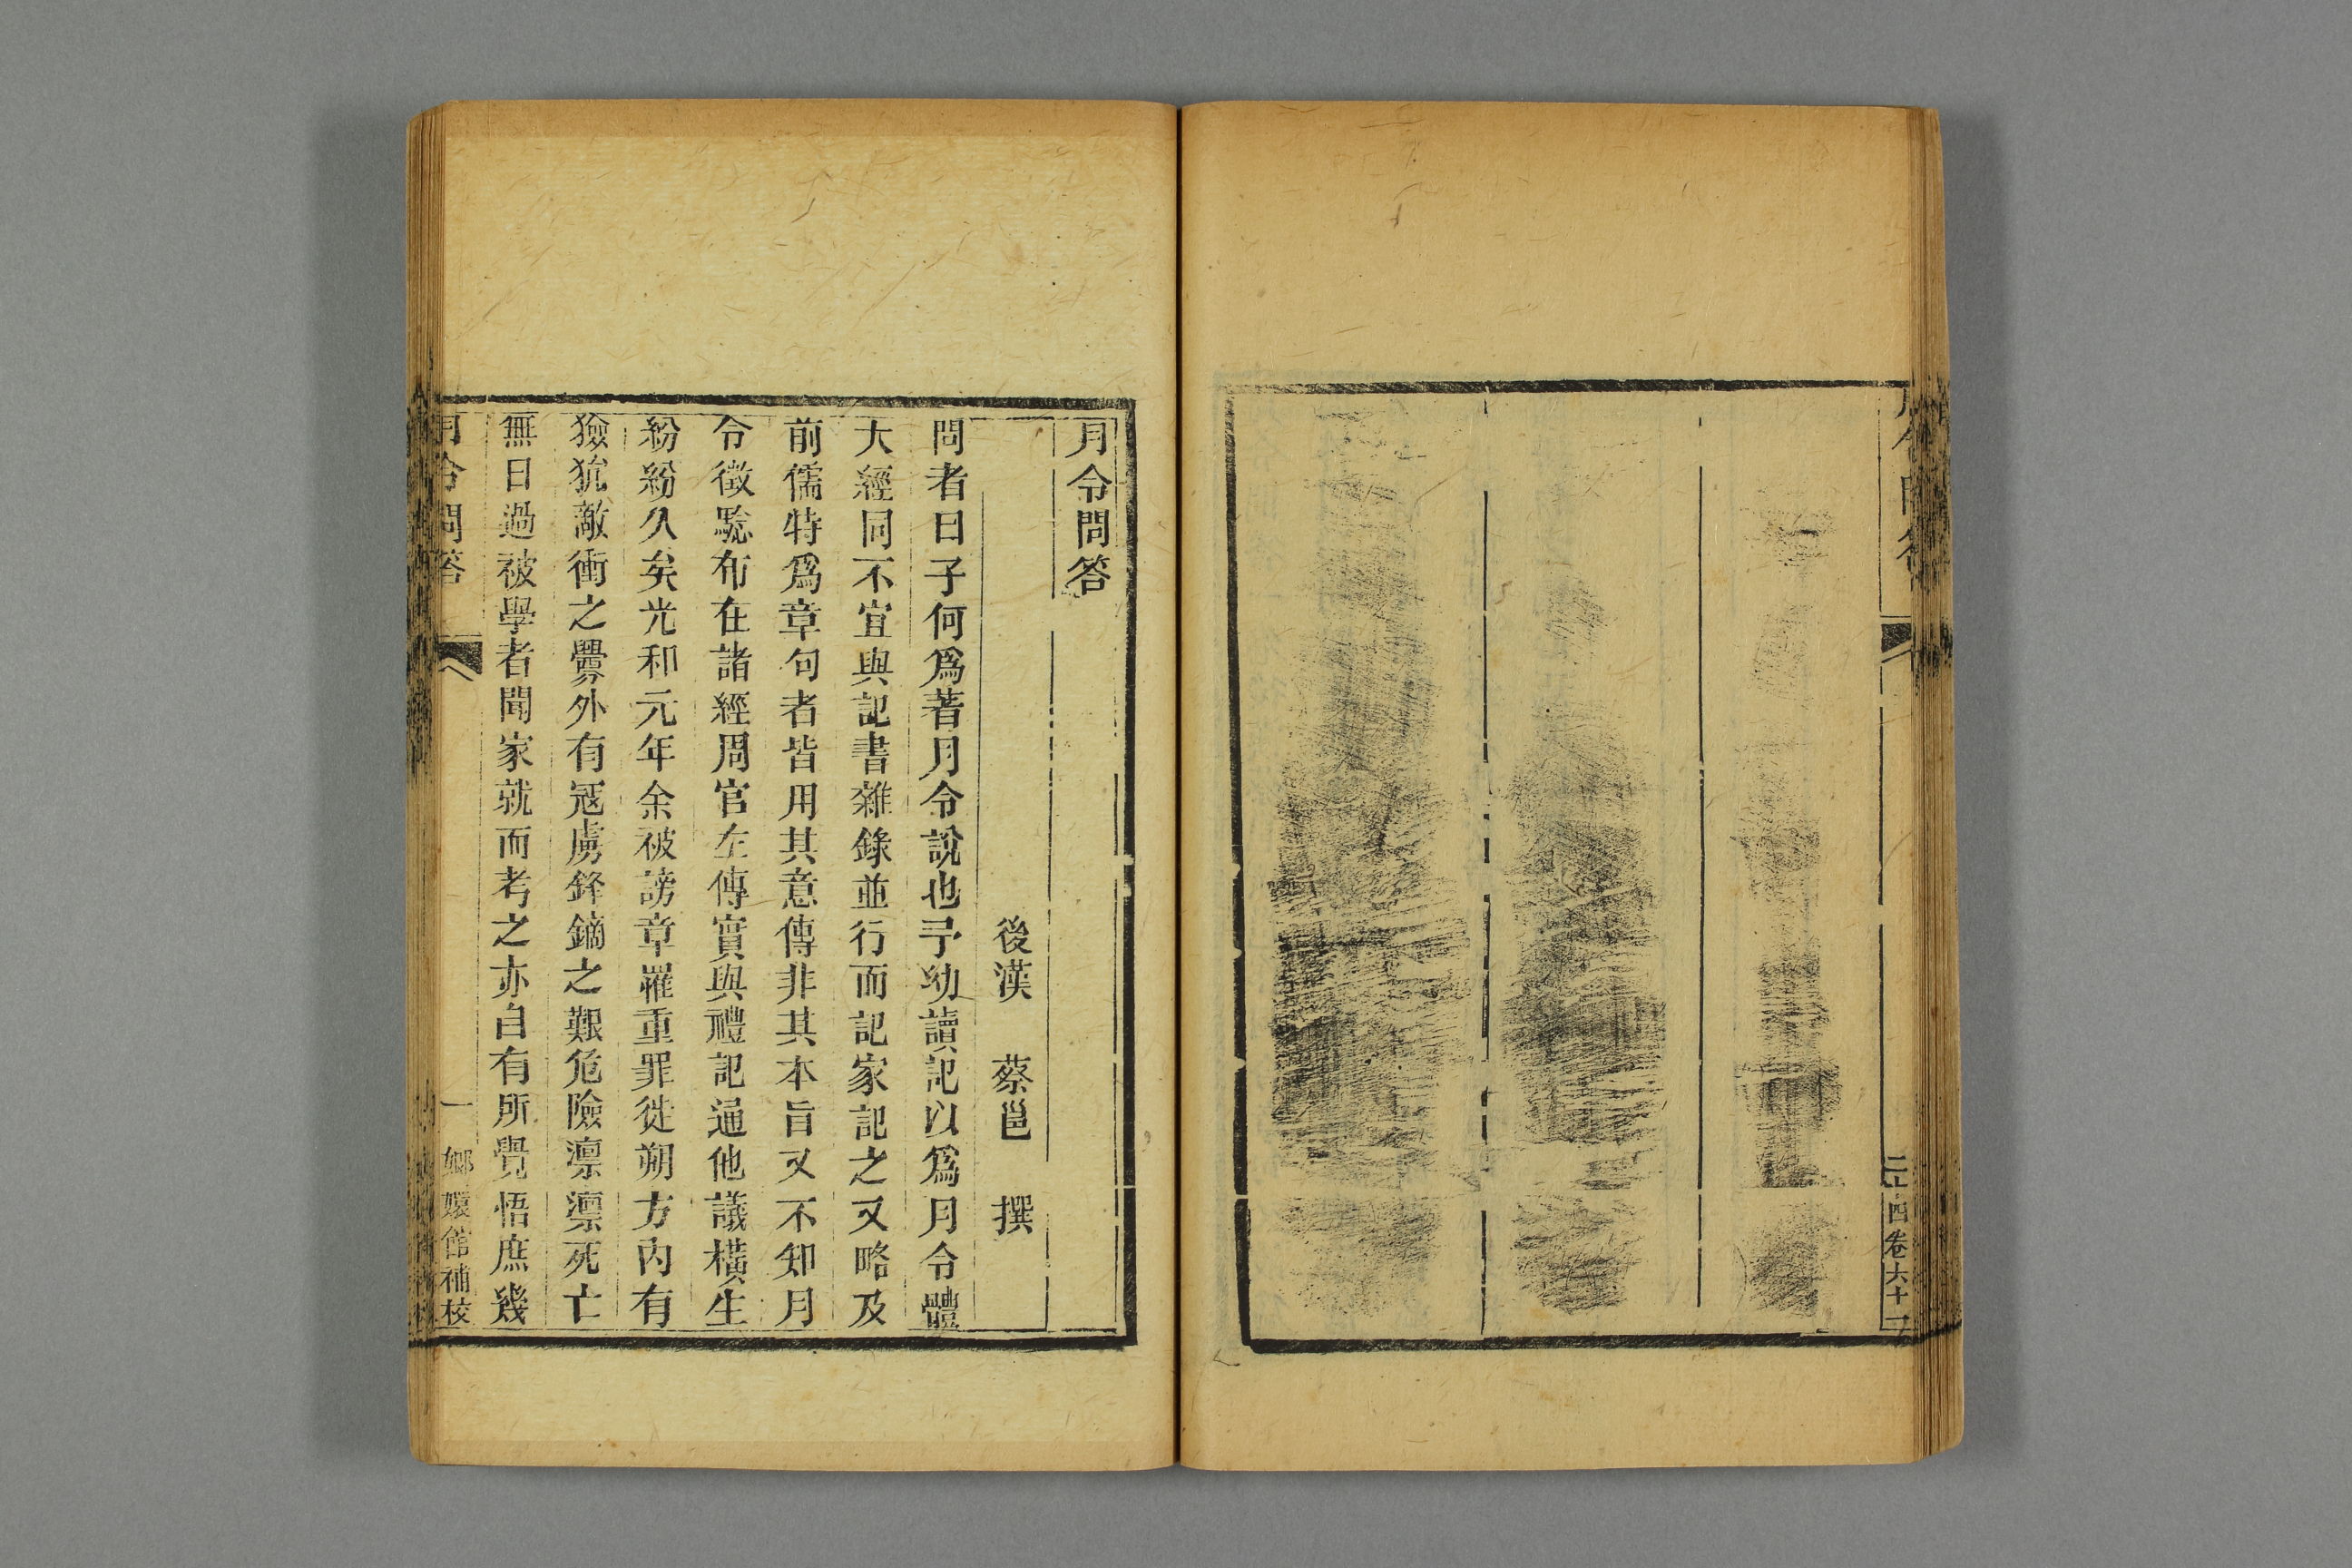 月令問答
後漢 蔡邕 撰
問者曰子何爲著月令說也予幼讀記以爲月令體
大經同不宜與記書雜錄並行而記家記之又略及
前儒特爲章句者皆用其意傳非其本旨又不知月
令徵驗布在諸經周官左傳實與禮記通他議橫生
紛紛久矣光和元年余被謗章罹重罪徙朔方內有
獫狁敵衝之釁外有冦虜鋒鏑之艱危險凛凛死亡
無日過被學者聞家就而考之亦自有所覺悟庶幾
月令問答 一 嫏嬛館補校
四 卷六十